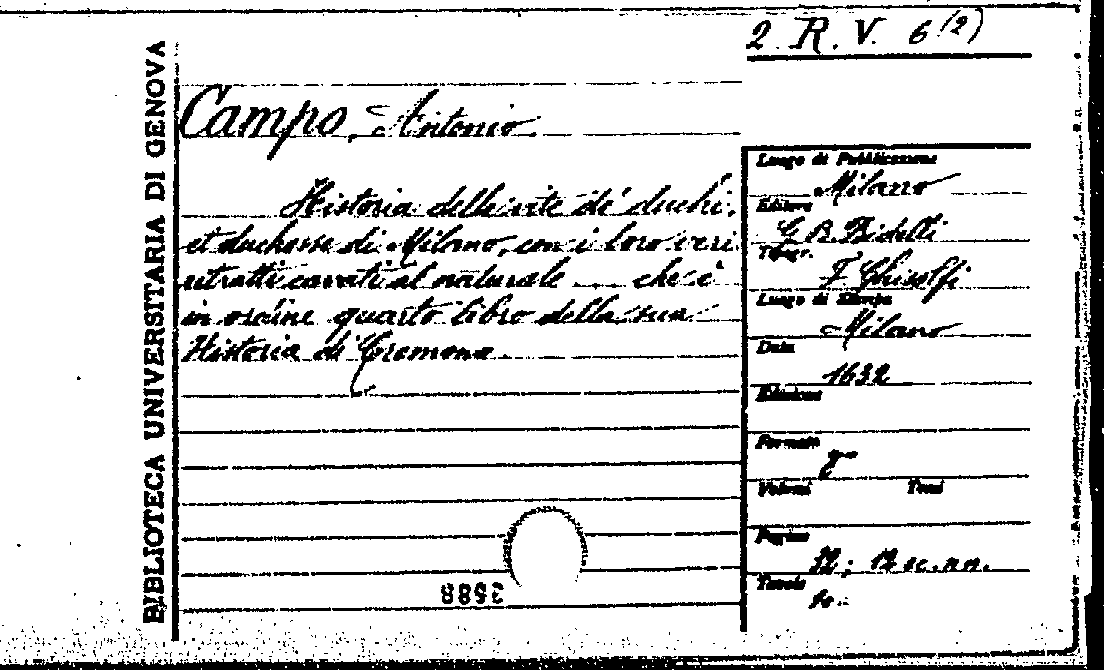 2 R. V. 6 (2)
BIBLIOTECA UNIVERSITARIA DI GENOVA
Campo, Antonio.
Historia delle vite de' duchi,
et duchesse di Milano, con i loro veri
ritratti cavati al naturale ... che è
in ordine quarto libro della sua
Historia di Cremona.
3588
Luogo di Pubblicazione
Milano
Editore
G. B. Bidelli
Tipogr.
F. Ghisolfi
Luogo di Stampa
Milano
Data
1632
Edizione
Formato
Volumi Tomi
Pagine
12 cc. nn.
Tavole